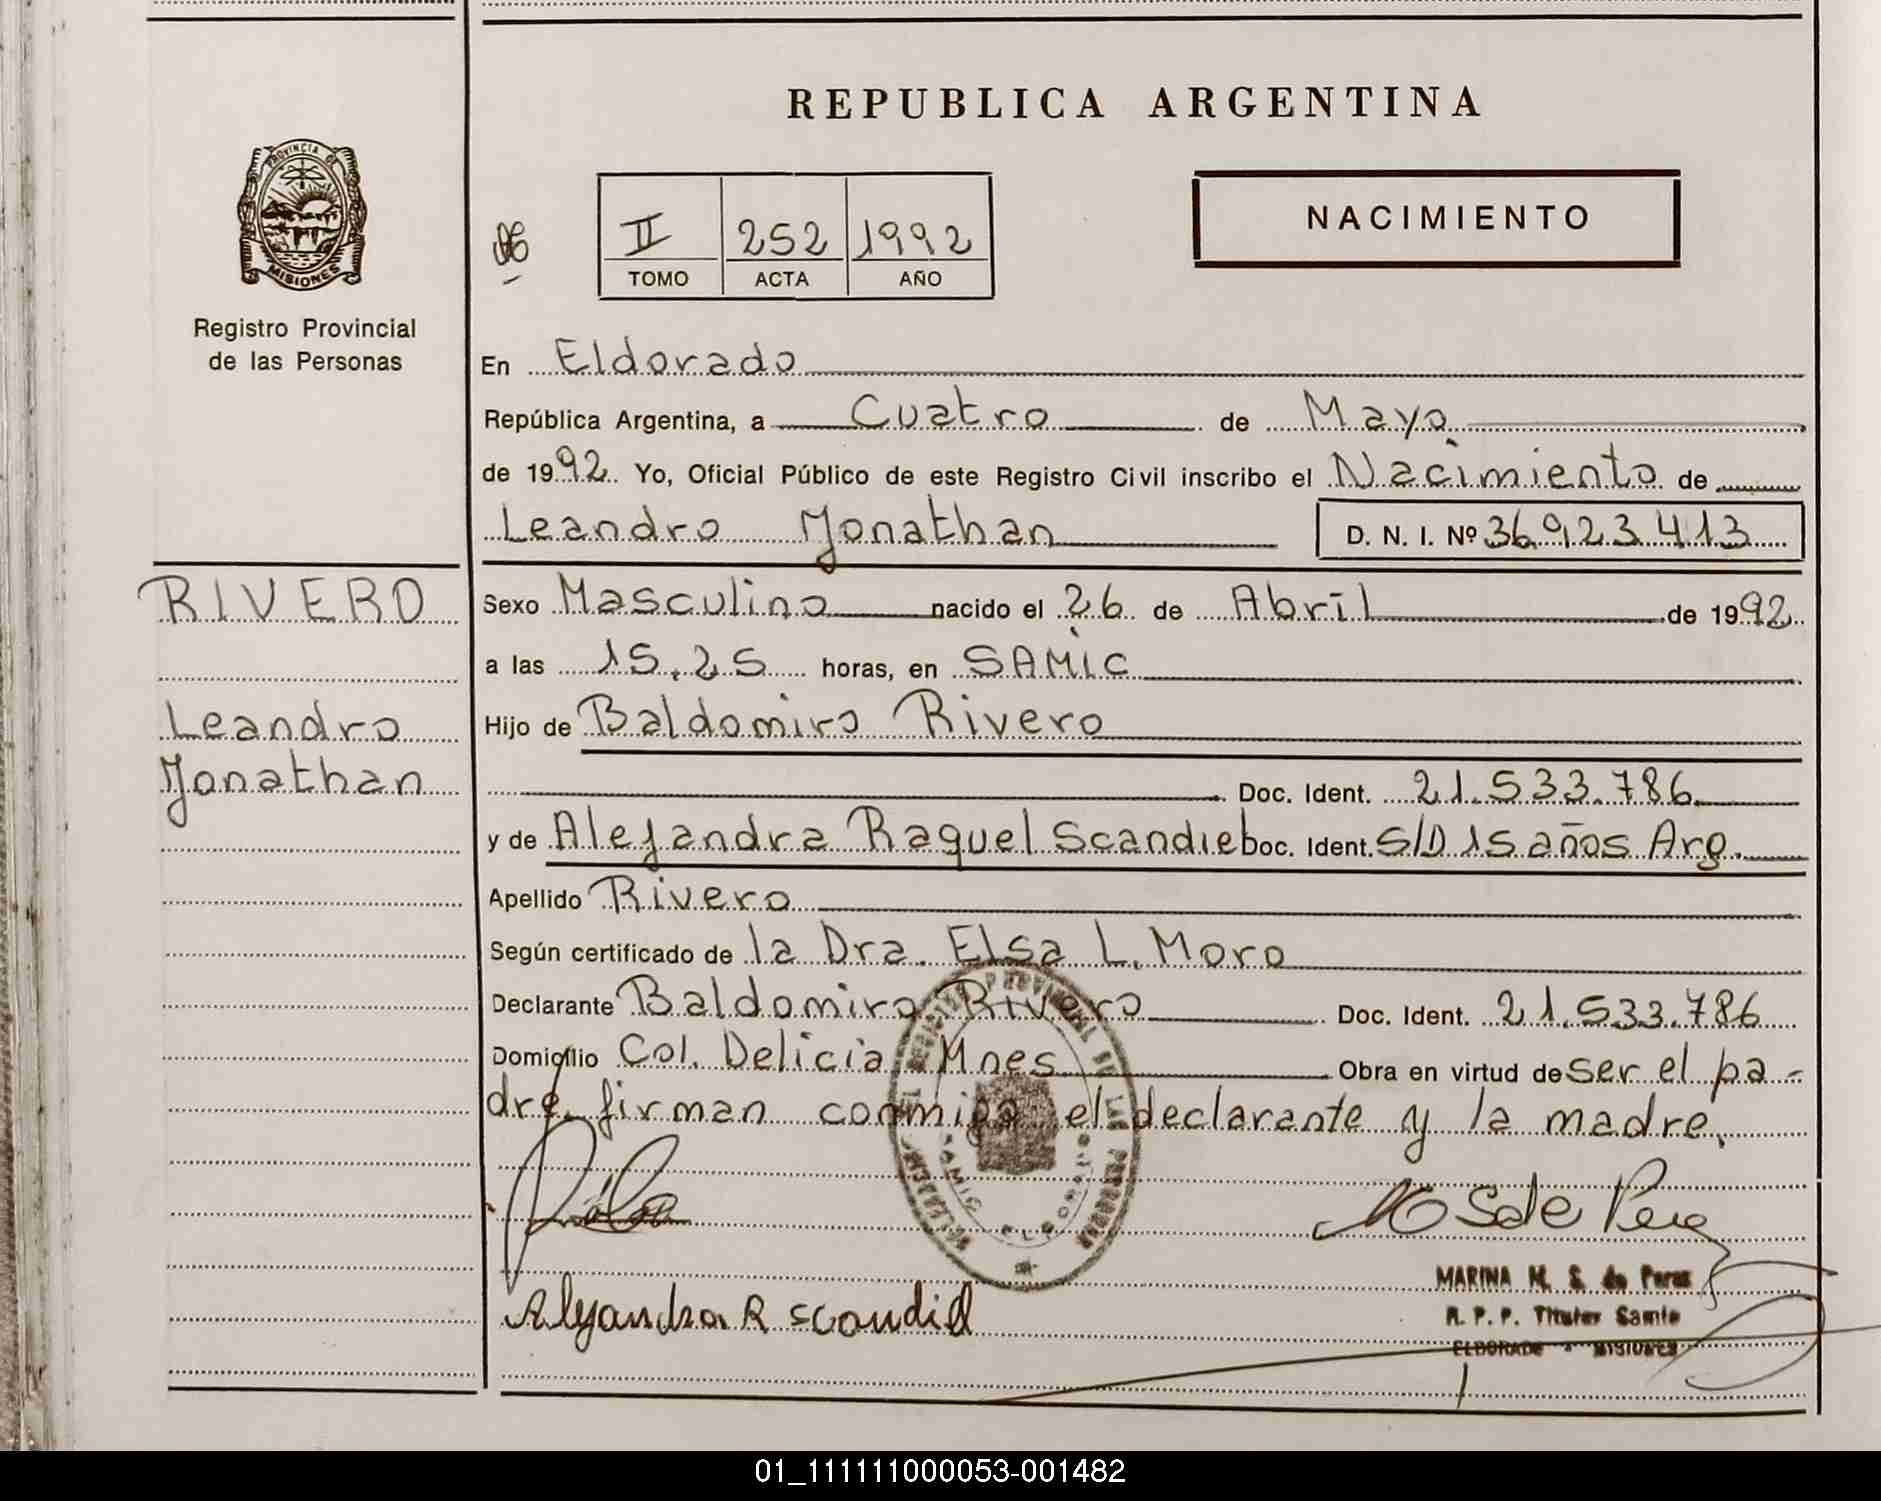 REPUBLICA ARGENTINA
PROVINCIA DE
MISIONES
Registro Provincial
de las Personas
II 252 1992
TOMO ACTA AÑO
NACIMIENTO
En Eldorado
República Argentina, a Cuatro de Mayo
de 1992. Yo, Oficial Público de este Registro Civil inscribo el Nacimiento de
Leandro Jonathan D. N. I. Nº 36.923.413
RIVERO
Leandro
Jonathan
Sexo Masculino nacido el 26 de Abril de 1992
a las 15.25 horas, en SAMIC
Hijo de Baldomiro Rivero
Doc. Ident. 21.533.786
y de Alejandra Raquel Scandiel Doc. Ident. S/D 15 años Arg.
Apellido Rivero
Según certificado de la Dra. Elsa L. Moro
Declarante Baldomiro Rivero Doc. Ident. 21.533.786
Domicilio Col. Delicia Mnes Obra en virtud de ser el pa-
dre, firman conmigo el declarante y la madre.
Alejandra R Scandiel
MARINA M. S. de Perez
R. P. P. Titular Samic
ELDORADO - MISIONES
01_111111000053-001482